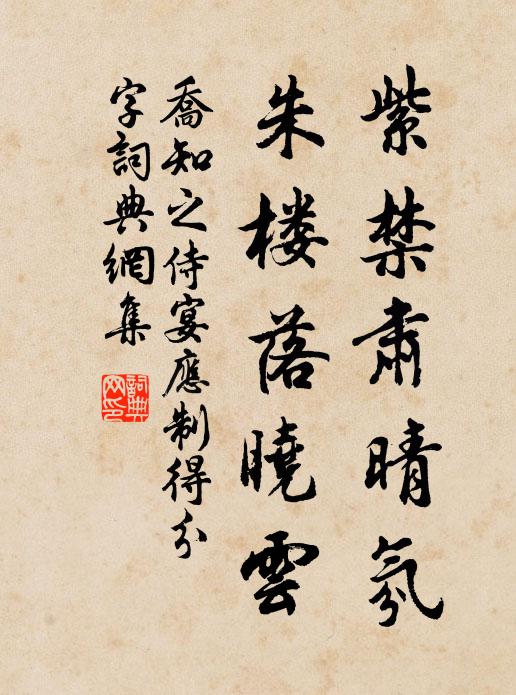 紫禁肅晴氛
朱楼落曉雲
喬知之侍宴應制得分
字詞典網集
詞典
网印